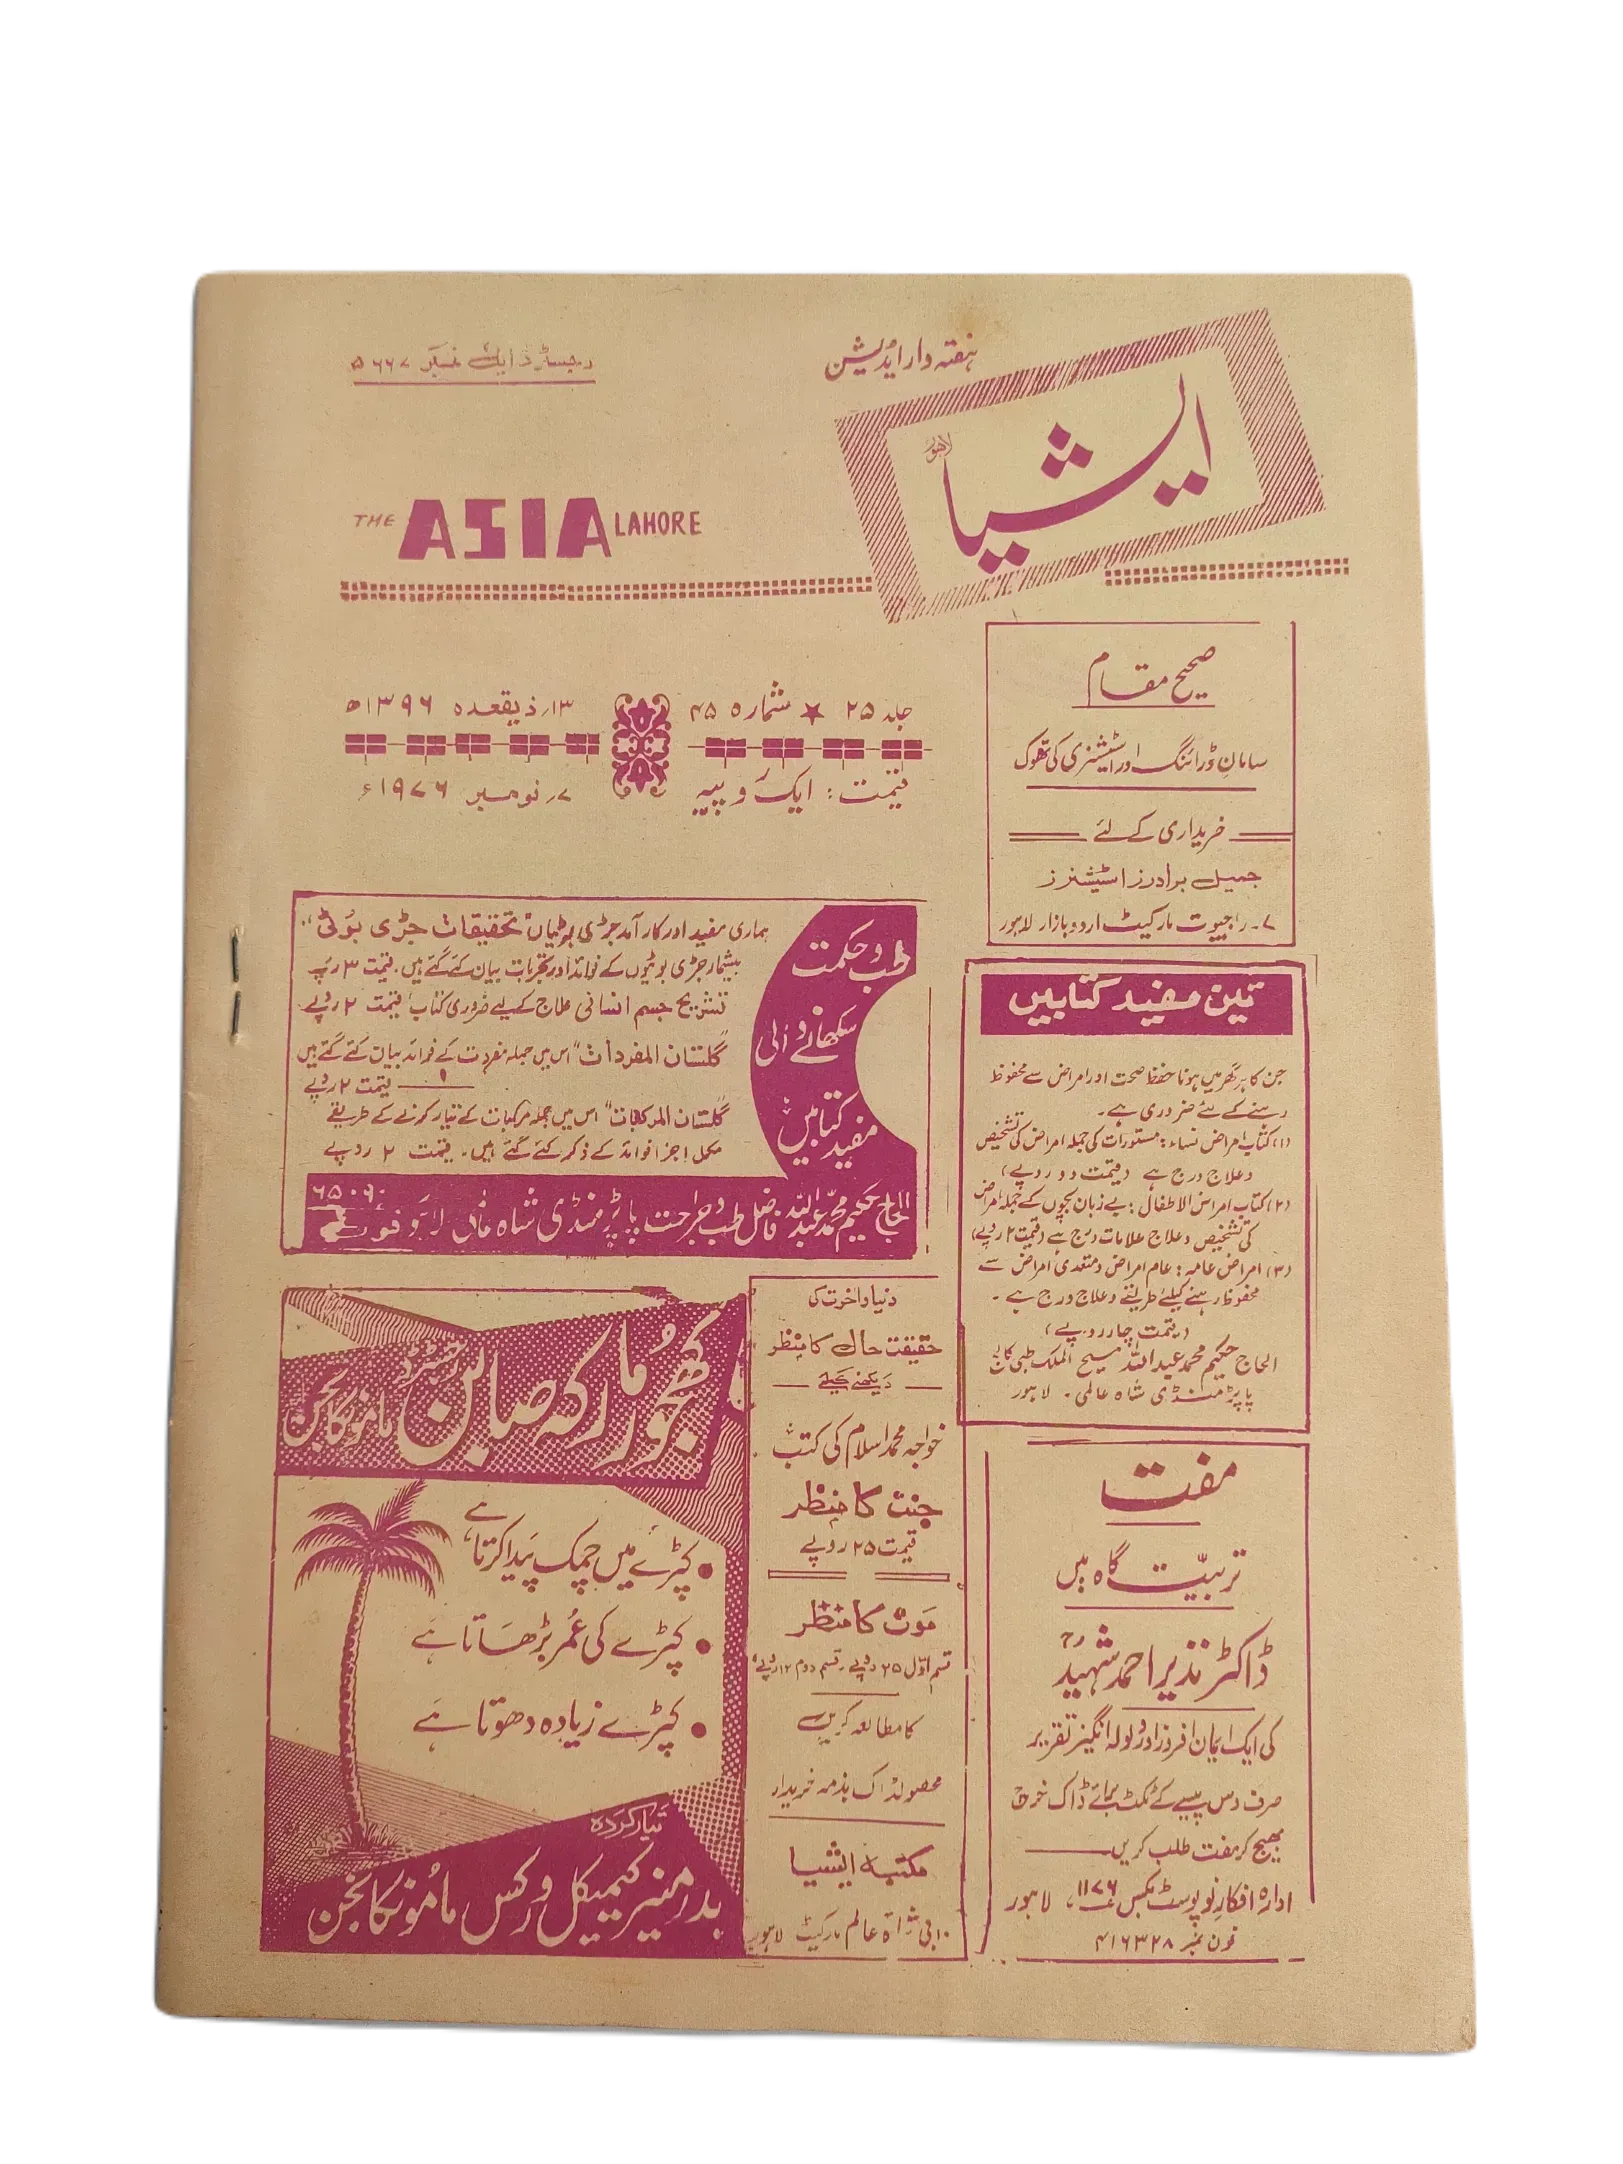 رجسٹرڈ ایل نمبر ۵۶۶۷
ہفتہ وار ایڈیشن
ایشیا
لاہور
THE ASIA LAHORE
جلد ۲۵ ★ شمارہ ۴۵
۱۳؍ ذیقعدہ ۱۳۹۶ھ
قیمت: ایک روپیہ
۷؍ نومبر ۱۹۷۶ء
صحیح مقام
سامان ڈرائنگ اور اسٹیشنری کی تھوک
خریداری کے لئے
جمیل برادرز اسٹیشنرز
۷۔ راجپوت مارکیٹ اردو بازار لاہور
طب و حکمت
سکھانے والی
مفید کتابیں
ہماری مفید اور کارآمد جڑی بوٹیاں "تحقیقات جڑی بوٹی"
بیشمار جڑی بوٹیوں کے فوائد اور تجربات بیان کئے گئے ہیں۔ قیمت ۳ روپے
تشریح جسم انسانی علاج کے لیے ضروری کتاب قیمت ۲ روپے
"گلستان المفردات" اس میں جملہ مفردات کے فوائد بیان کئے گئے ہیں
قیمت ۲ روپے
"گلستان المرکبات" اس میں جملہ مرکبات کے تیار کرنے کے طریقے
مکمل اجزا فوائد کے ذکر کئے گئے ہیں۔ قیمت ۲ روپے
الحاج حکیم محمد عبداللہ فاضل طب و جراحت پاپڑ منڈی شاہ عالمی لاہور فون ۶۵۰۹۰
تین مفید کتابیں
جن کا ہر گھر میں ہونا حفظ صحت اور امراض سے محفوظ
رہنے کے لئے ضروری ہے۔
(۱) کتاب امراض نساء: مستورات کی جملہ امراض کی تشخیص
و علاج درج ہے (قیمت دو روپے)
(۲) کتاب امراض الاطفال: بے زبان بچوں کے جملہ امراض
کی تشخیص و علاج علامات درج ہے (قیمت ۲ روپے)
(۳) امراض عامہ: عام امراض و متعدی امراض سے
محفوظ رہنے کیلئے طریقے و علاج درج ہے۔
(قیمت چار روپے)
الحاج حکیم محمد عبداللہ مسیح الملک طبی کالج
پاپڑ منڈی شاہ عالمی۔ لاہور
کھجور مارکہ صابن
رجسٹرڈ
ماموں کانجن
• کپڑے میں چمک پیدا کرتا ہے
• کپڑے کی عمر بڑھاتا ہے
• کپڑے زیادہ دھوتا ہے
تیار کردہ
بدر منیر کیمیکل ورکس ماموں کانجن
دنیا و آخرت کی
حقیقت حال کا منظر
دیکھنے کیلئے
خواجہ محمد اسلام کی کتب
جنت کا منظر
قیمت ۲۵ روپے
موت کا منظر
قسم اول ۲۵ روپے، قسم دوم ۱۲ روپے
کا مطالعہ کریں
محصولڈاک بذمہ خریدار
مکتبہ ایشیا
۱۰ بی شاہ عالم مارکیٹ لاہور
مفت
تربیت گاہ میں
ڈاکٹر نذیر احمد شہیدؒ
کی ایک ایمان افروز اور ولولہ انگیز تقریر
صرف دس پیسے کے ٹکٹ برائے ڈاک خرچ
بھیج کر مفت طلب کریں
ادارہ افکار نو پوسٹ بکس ۱۱۷۶، لاہور
فون نمبر ۴۱۶۳۲۸